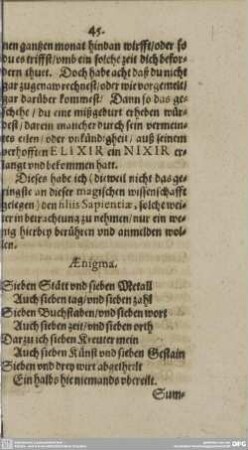 45.
nen gantzen monat hindan wirfft/oder so
du es triffst/vmb ein solche zeit dich befor-
dern thuet. Doch habe acht daß du nicht
gar zugenaw rechnest/oder wie vorgemelt/
gar darüber kommest/ Dann so das ge-
schehe/ du eine mißgeburt erheben wür-
dest/ darein mancher durch sein vermein-
tes eilen/ oder vnkündigheit/ auß seinem
verhofften ELIXIR ein NIXIR er-
langt vnd bekommen hatt.
Dieses habe ich (dieweil nicht das ge-
ringste an dieser magischen wissenschafft
gelegen) den filiis Sapientiæ, solche wei-
ter in betrachtung zu nehmen/nur ein we-
nig hierbey berühren vnd anmelden wol-
len.
Ænigma.
Sieben Stätt vnd sieben Metall
Auch sieben tag/vnd sieben zahl
Sieben Buchstaben/vnd sieben wort
Auch sieben zeit/vnd sieben orth
Darzu ich sieben Kreuter mein
Auch sieben Künst vnd sieben Gestain
Sieben vnd drey wirt abgetheilt
Ein halbs hie niemands vbereilt.
Sum-